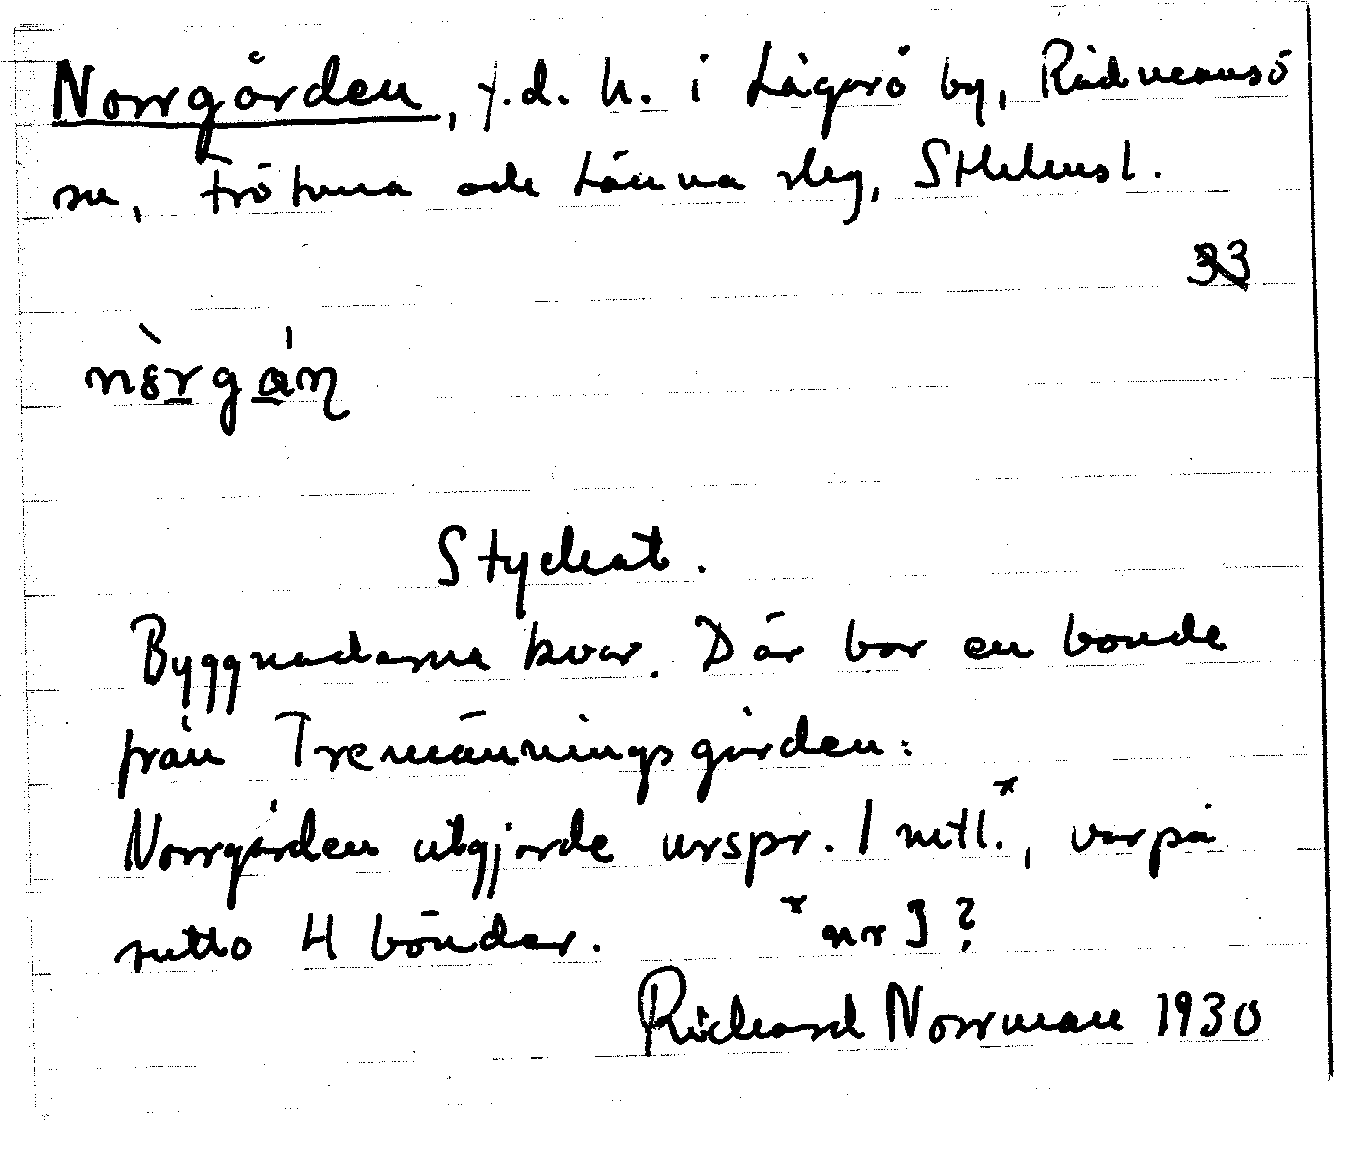 Norrgården, f.d. h. i Lågarö by, Rådmansö
sn, Frötuna och Länna slg, Sthlmsl.
33
nèrgán
Styckat.
Byggnaderna kvar. Där bor en bonde
från Tremänningsgården:
Norrgården utgjorde urspr. 1 mtl.ˣ, varpå
sutto 4 bönder. ˣ nr 3?
Richard Norrman 1930